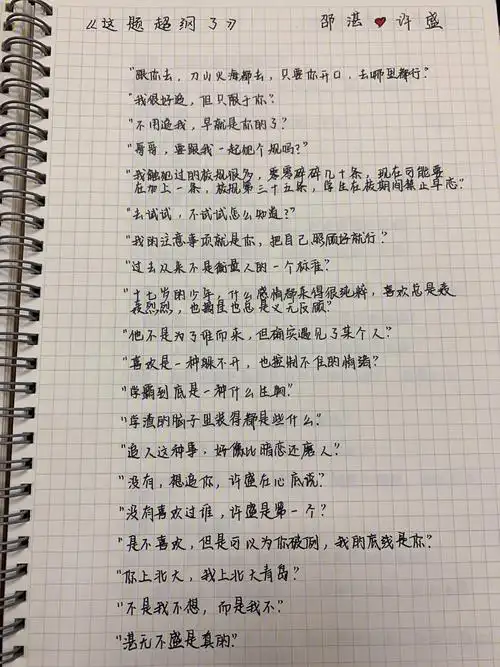 《这题超纲了》 邵湛❤许盛
"跟你去，刀山火海都去，只要你开口，去哪里都行？
"我很好追，但只限于你？
"不用追我，早就是你的了？
"哥哥，要跟我一起犯个规吗？
"我触犯过的校规很多，零零碎碎几十条，现在可能要
在加上一条，校规第三十五条，学生在校期间禁止早恋"
"去试试，不试试怎么知道？"
"我的注意事项就是你，把自己照顾好就行？
"过去从来不是衡量人的一个标准？
"十七岁的少年，什么感情都来得很纯粹，喜欢总是轰
轰烈烈，也拥住也总是义无反顾"
"他不是为了谁而来，但确实遇见了某个人？
"喜欢是一种躲不开，也控制不住的情绪？
"学霸到底是一种什么生物？
"学渣的脑子里装得都是些什么？
"追人这种事，好像比暗恋还磨人？
"没有，想追你，许盛在心底说？
"没有喜欢过谁，许盛是第一个？
"是不喜欢，但是可以为你破例，我的底线是你？
"你上北大，我上北大青鸟？
"不是我不想，而是我不？
"湛无不盛是真的"